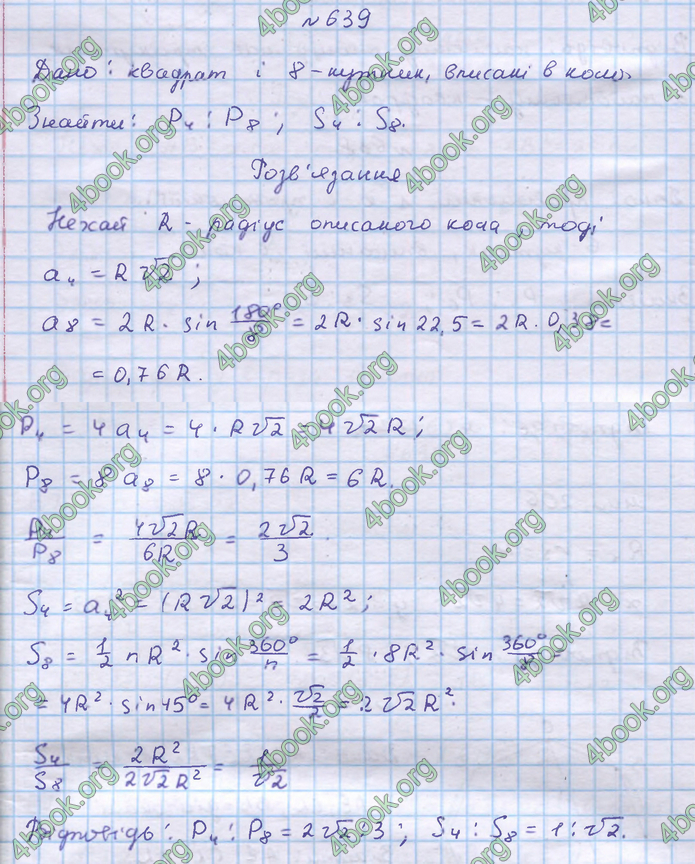 № 639
Дано: квадрат і 8-кутник, вписані в коло.
Знайти: P₄ : P₈ ; S₄ : S₈.
Розв'язання
Нехай R - радіус описаного кола, тоді
a₄ = R√2 ;
a₈ = 2R · sin 180°/8 = 2R · sin 22,5 = 2R · 0,38 =
= 0,76 R.
P₄ = 4a₄ = 4 · R√2 = 4√2 R ;
P₈ = 8 a₈ = 8 · 0,76 R = 6R.
P₄/P₈ = 4√2R/6R = 2√2/3 .
S₄ = a₄² = (R√2)² = 2R² ;
S₈ = 1/2 nR² · sin 360°/n = 1/2 · 8R² · sin 360°/8 =
= 4R² · sin 45° = 4R² · √2/2 = 2√2R².
S₄/S₈ = 2R²/2√2R² = 1/√2
Відповідь: P₄ : P₈ = 2√2 : 3 ; S₄ : S₈ = 1 : √2.
4book.org